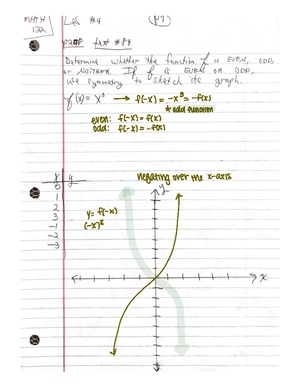 MATH
122
#4
Determine whether the function f is EVEN, ODD,
or NEITHER. If f is EVEN or ODD,
use symmetry to sketch its graph.
f(x) = x³ → f(-x) = -x³ = -f(x)
* odd function
even: f(-x) = f(x)
odd: f(-x) = -f(x)
x y
0
1
2
3
-1
-2
-3
negating over the x-axis
y = f(-x)
(-x)³
y
x